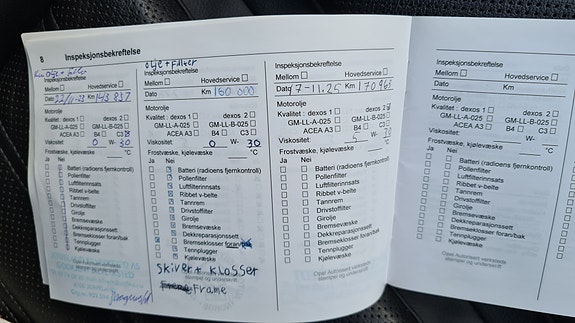 8 Inspeksjonsbekreftelse
olje + filter
Inspeksjonsbekreftelse
Mellom Hovedservice
Dato Km 143 837
Motorolje
Kvalitet: dexos 1 dexos 2
GM-LL-A-025 GM-LL-B-025
ACEA A3 B4 C3
Viskositet: 0 W- 30
Frostvæske, kjølevæske °C
Ja Nei
Batteri (radioens fjernkontroll)
Pollenfilter
Luftfilterinnsats
Ribbet v-belte
Tannrem
Drivstoffilter
Girolje
Bremsevæske
Dekkreparasjonssett
Bremseklosser foran/bak
Tennplugger
Kjølevæske
olje + filter
Inspeksjonsbekreftelse
Mellom Hovedservice
Dato Km 160 000
Motorolje
Kvalitet: dexos 1 dexos 2
GM-LL-A-025 GM-LL-B-025
ACEA A3 B4 C3
Viskositet: 0 W- 30
Frostvæske, kjølevæske °C
Ja Nei
Batteri (radioens fjernkontroll)
Pollenfilter
Luftfilterinnsats
Ribbet v-belte
Tannrem
Drivstoffilter
Girolje
Bremsevæske
Dekkreparasjonssett
Bremseklosser foran/bak
Tennplugger
Kjølevæske
Skiver + klosser
Frame
Inspeksjonsbekreftelse
Mellom Hovedservice
Dato 7-11.25 Km 170965
Motorolje
Kvalitet: dexos 1 dexos 2
GM-LL-A-025 GM-LL-B-025
ACEA A3 B4 C3
Viskositet: 5 W- 30
Frostvæske, kjølevæske °C
Ja Nei
Batteri (radioens fjernkontroll)
Pollenfilter
Luftfilterinnsats
Ribbet v-belte
Tannrem
Drivstoffilter
Girolje
Bremsevæske
Dekkreparasjonssett
Bremseklosser foran/bak
Tennplugger
Kjølevæske
Opel Autorisert verksteds
stempel og underskrift
Inspeksjonsbekreftelse
Mellom Hovedservice
Dato Km
Motorolje
Kvalitet: dexos 1 dexos 2
GM-LL-A-025 GM-LL-B-025
ACEA A3 B4 C3
Viskositet: W-
Frostvæske, kjølevæske °C
Ja Nei
Batteri (radioens fjernkontroll)
Pollenfilter
Luftfilterinnsats
Ribbet v-belte
Tannrem
Drivstoffilter
Girolje
Bremsevæske
Dekkreparasjonssett
Bremseklosser foran/bak
Tennplugger
Kjølevæske
Opel Autorisert verksteds
stempel og underskrift